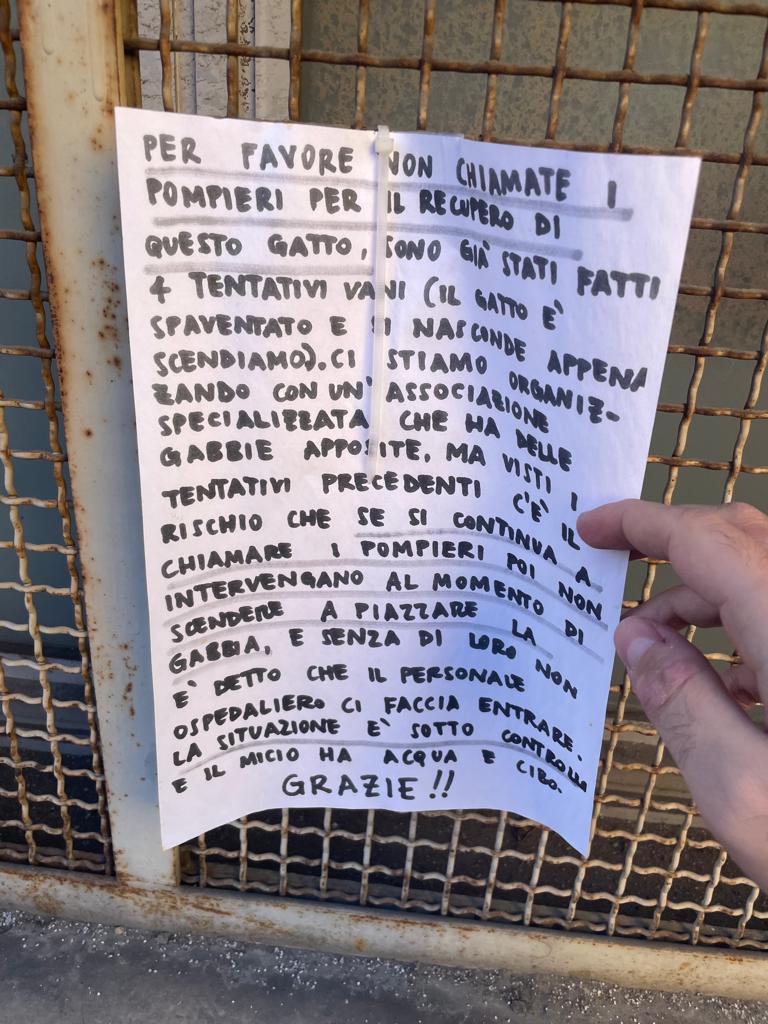 PER FAVORE NON CHIAMATE I
POMPIERI PER IL RECUPERO DI
QUESTO GATTO, SONO GIÀ STATI FATTI
4 TENTATIVI VANI (IL GATTO E'
SPAVENTATO E SI NASCONDE APPENA
SCENDIAMO). CI STIAMO ORGANIZ-
ZANDO CON UN' ASSOCIAZIONE
SPECIALIZZATA CHE HA DELLE
GABBIE APPOSITE, MA VISTI I
TENTATIVI PRECEDENTI C'E' IL
RISCHIO CHE SE SI CONTINUA A
CHIAMARE I POMPIERI POI NON
INTERVENGANO AL MOMENTO DI
SCENDERE A PIAZZARE LA
GABBIA, E SENZA DI LORO NON
E' DETTO CHE IL PERSONALE
OSPEDALIERO CI FACCIA ENTRARE.
LA SITUAZIONE E' SOTTO CONTROLLO
E IL MICIO HA ACQUA E CIBO.
GRAZIE!!